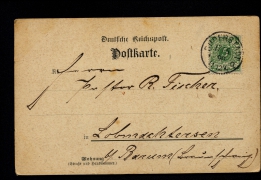 Deutsche Reichspost.
Postkarte.
Herrn
Pastor R. Fischer.
in
Lobmachtersen
b/ Barum (Braunschweig)
Wohnung
(Straße und Hausnummer)